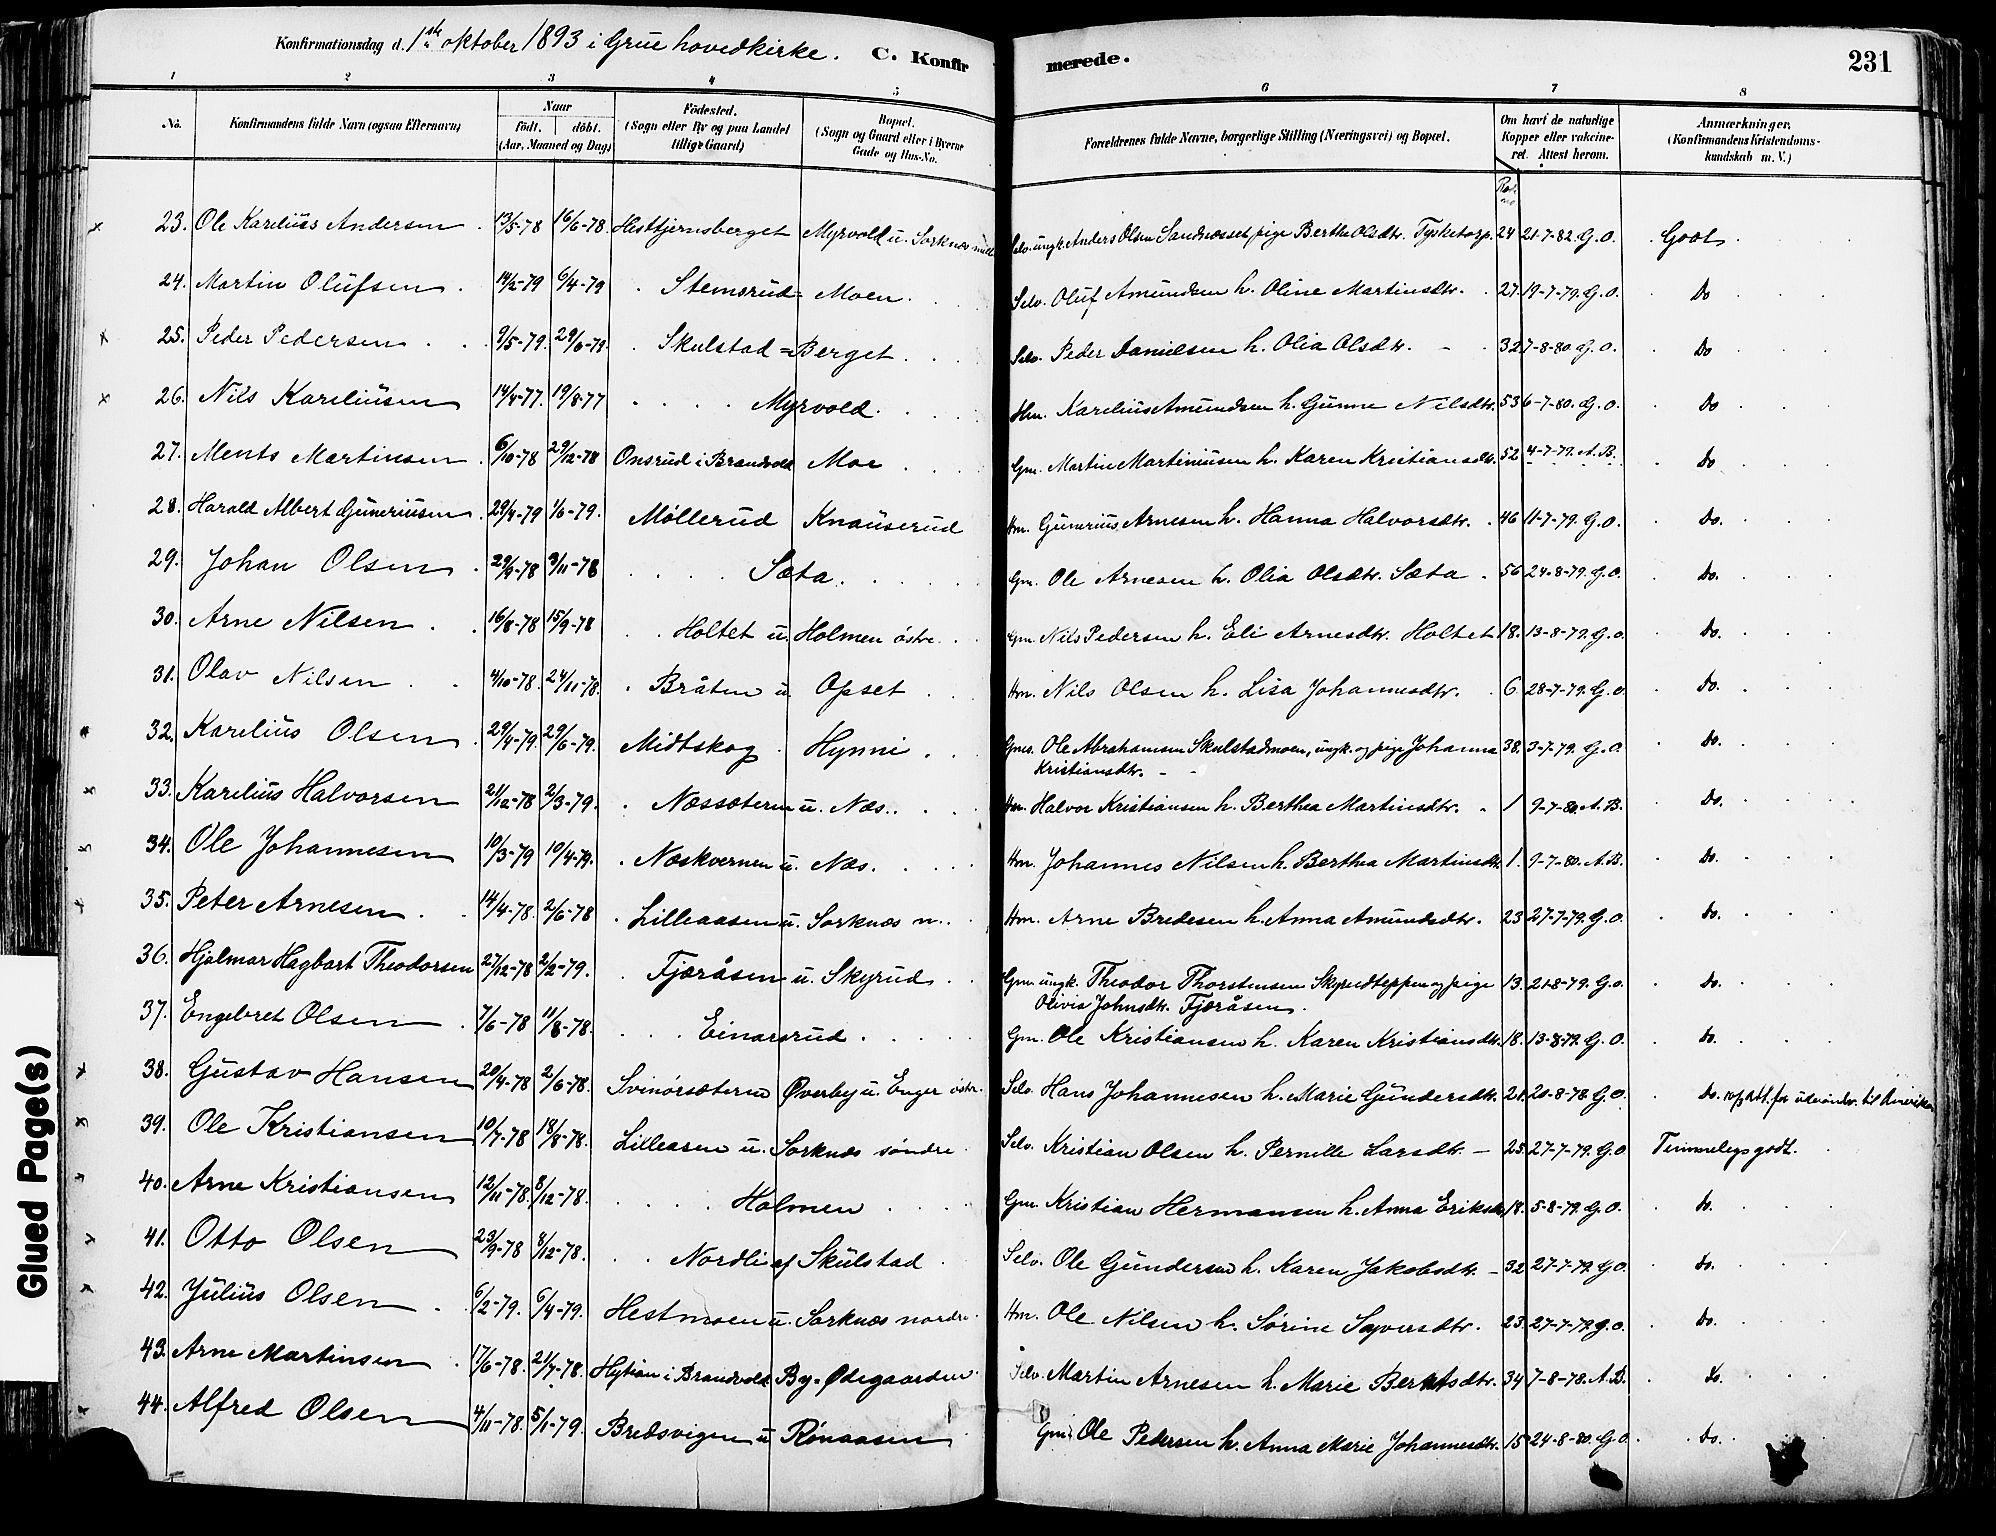 Konfirmationsdag d. 1ste oktober 1893 i Grue hovedkirke. C. Konfir
merede. 231
1 2 3 4 5 6 7 8
No. Konfirmandens fulde Navn (ogsaa Efternavn) Naar født. døbt. (Aar, Maaned og Dag) Födested. (Sogn eller By og paa Landet tillige Gaard) Bopæl. (Sogn og Gaard eller i Byerne Gade og Hus-No. Forældrenes fulde Navne, borgerlige Stilling (Næringsvei) og Bopæl. Om havt de naturlige Kopper eller vakcineret. Attest herom. Anmærkninger. (Konfirmandens Kristendomskundskab m. V.)
23. Ole Karelius Andersen 13/5-78 16/6-78. Hesttjernsberget Myrvold u. Sorknæs Selv. ungk. Anders Olsen Sandnæsset, pige Berthe Olsdtr. Tysketorp. 24 21-7-82. G.O. Godt
24. Martin Olufsen 14/2-79 6/4-79 Stemsrud- Moen Selv. Oluf Amundsen h. Oline Martinsdtr. 27. 19-7-79. G.O. Do
25. Peder Pedersen 9/5-79. 29/6-79. Skulstad=Berget Selv. Peder Danielsen h. Olia Olsdtr. 32 7-8-80 G.O. Do
26. Nils Kareliusen 14/4-77. 19/8-77 Myrvold Hm. Karelius Amundsen h. Gunne Nilsdtr. 53 6-7-80. G.O. Do
27. Ments Martinsen 6/10-78 29/12-78 Onsrud i Brandvold Moe Gm. Martin Martiniusen h. Karen Kristiansdtr. 52 4-7-79. A.B. Do
28. Harald Albert Guneriusen 29/4-79 1/6-79. Møllerud Knauserud Hm. Gunerius Arnesen h. Hanna Halvorsdtr. 46 11-7-79. G.O. Do.
29. Johan Olsen 29/9-78 3/11-78 Sæta. Gm. Ole Arnesen h. Olia Olsdtr. Sæta 56 24-8-79. G.O. Do.
30. Arne Nilsen 16/8-78 15/9-78 Holtet u. Holmen østre Gm. Nils Pedersen h. Eli Arnesdtr. Holtet 18. 13-8-79. G.O. Do.
31. Olav Nilsen 4/10-78. 24/11-78. Bråten u. Opset Hm. Nils Olsen h. Lisa Johannesdtr. 6 28-7-79. G.O Do.
32. Karelius Olsen 29/4-79. 29/6-79. Midtskog Hynni Gms. Ole Abrahamsen Skulstadmoen, ungk. og pige Johanna 38. 3-7-79. G.O Do.
Kristiansdtr.
33. Karelius Halvorsen 21/12-78 2/3-79. Næssæteren u. Næs. Hm. Halvor Kristiansen h. Berthea Martinsdtr. 1 9-7-80. A.B. Do.
34. Ole Johannesen 10/3-79 19/4-79. Næskvernen u. Næs. Hm. Johannes Nilsen h. Berthea Martinsdtr. 1. 9-7-80. A.B. Do.
35. Peter Arnesen 14/4-78. 2/6-78 Lilleaasen u. Sorknæs n. Hm. Arne Bredesen h. Anna Amundsdtr. 23 27-7-79. G.O. Do.
36. Hjalmar Hagbart Theodorsen 27/12-78 2/2-79. Fjæråsen u. Skyrud Gm. ungk. Theodor Thorstensen Skyrudteppen og pige 13. 21-8-79. G.O. Do.
Olivia Johnsdtr. Fjæråsen.
37. Engebret Olsen 7/6-78 11/8-78. Einarsrud Gm. Ole Kristiansen h. Karen Kristiansdtr. 18. 13-8-79. G.O. Do.
38. Gustav Hansen 20/4-78 2/6-78. Svinørsæteren Øverby u. Enger østr. Selv. Hans Johannesen h. Marie Gundersdtr. 21. 20-8-78 G.O. Do. att. for udvandr. til Amerika
39. Ole Kristiansen 10/7-78 18/8-78. Lilleasen u. Sorknæs søndre Selv. Kristian Olsen h. Pernille Larsdtr. 25. 27-7-79. G.O Temmelegs godt.
40. Arne Kristiansen 12/11-78. 8/12-78. Holmen Gm. Kristian Hermansen h. Anna Eriksdtr. 18. 5-8-79. G.O. do.
41. Otto Olsen 23/9-78 8/12-78. Nordli af Skulstad Selv. Ole Gundersen h. Karen Jakobsdtr. 32 27-7-79. G.O. do.
42. Julius Olsen 6/2-79. 6/4-79. Hestmoen u. Sorknæs nordre Hm. Ole Nilsen h. Sørine Syversdtr. 23. 27-7-79. G.O. Do.
43. Arne Martinsen 17/6-78. 21/7-78. Hytjan i Brandvold By-Ødegaarden Selv. Martin Arnesen h. Marie Berntsdtr. 34 7-8-78. A.B. do.
44. Alfred Olsen 4/11-78. 5/1-79. Bredsvigen u Rønaasen Gm. Ole Pedersen h. Anna Marie Johannesdtr. 15 24-8-80. G.O Do.
Glued Page(s)